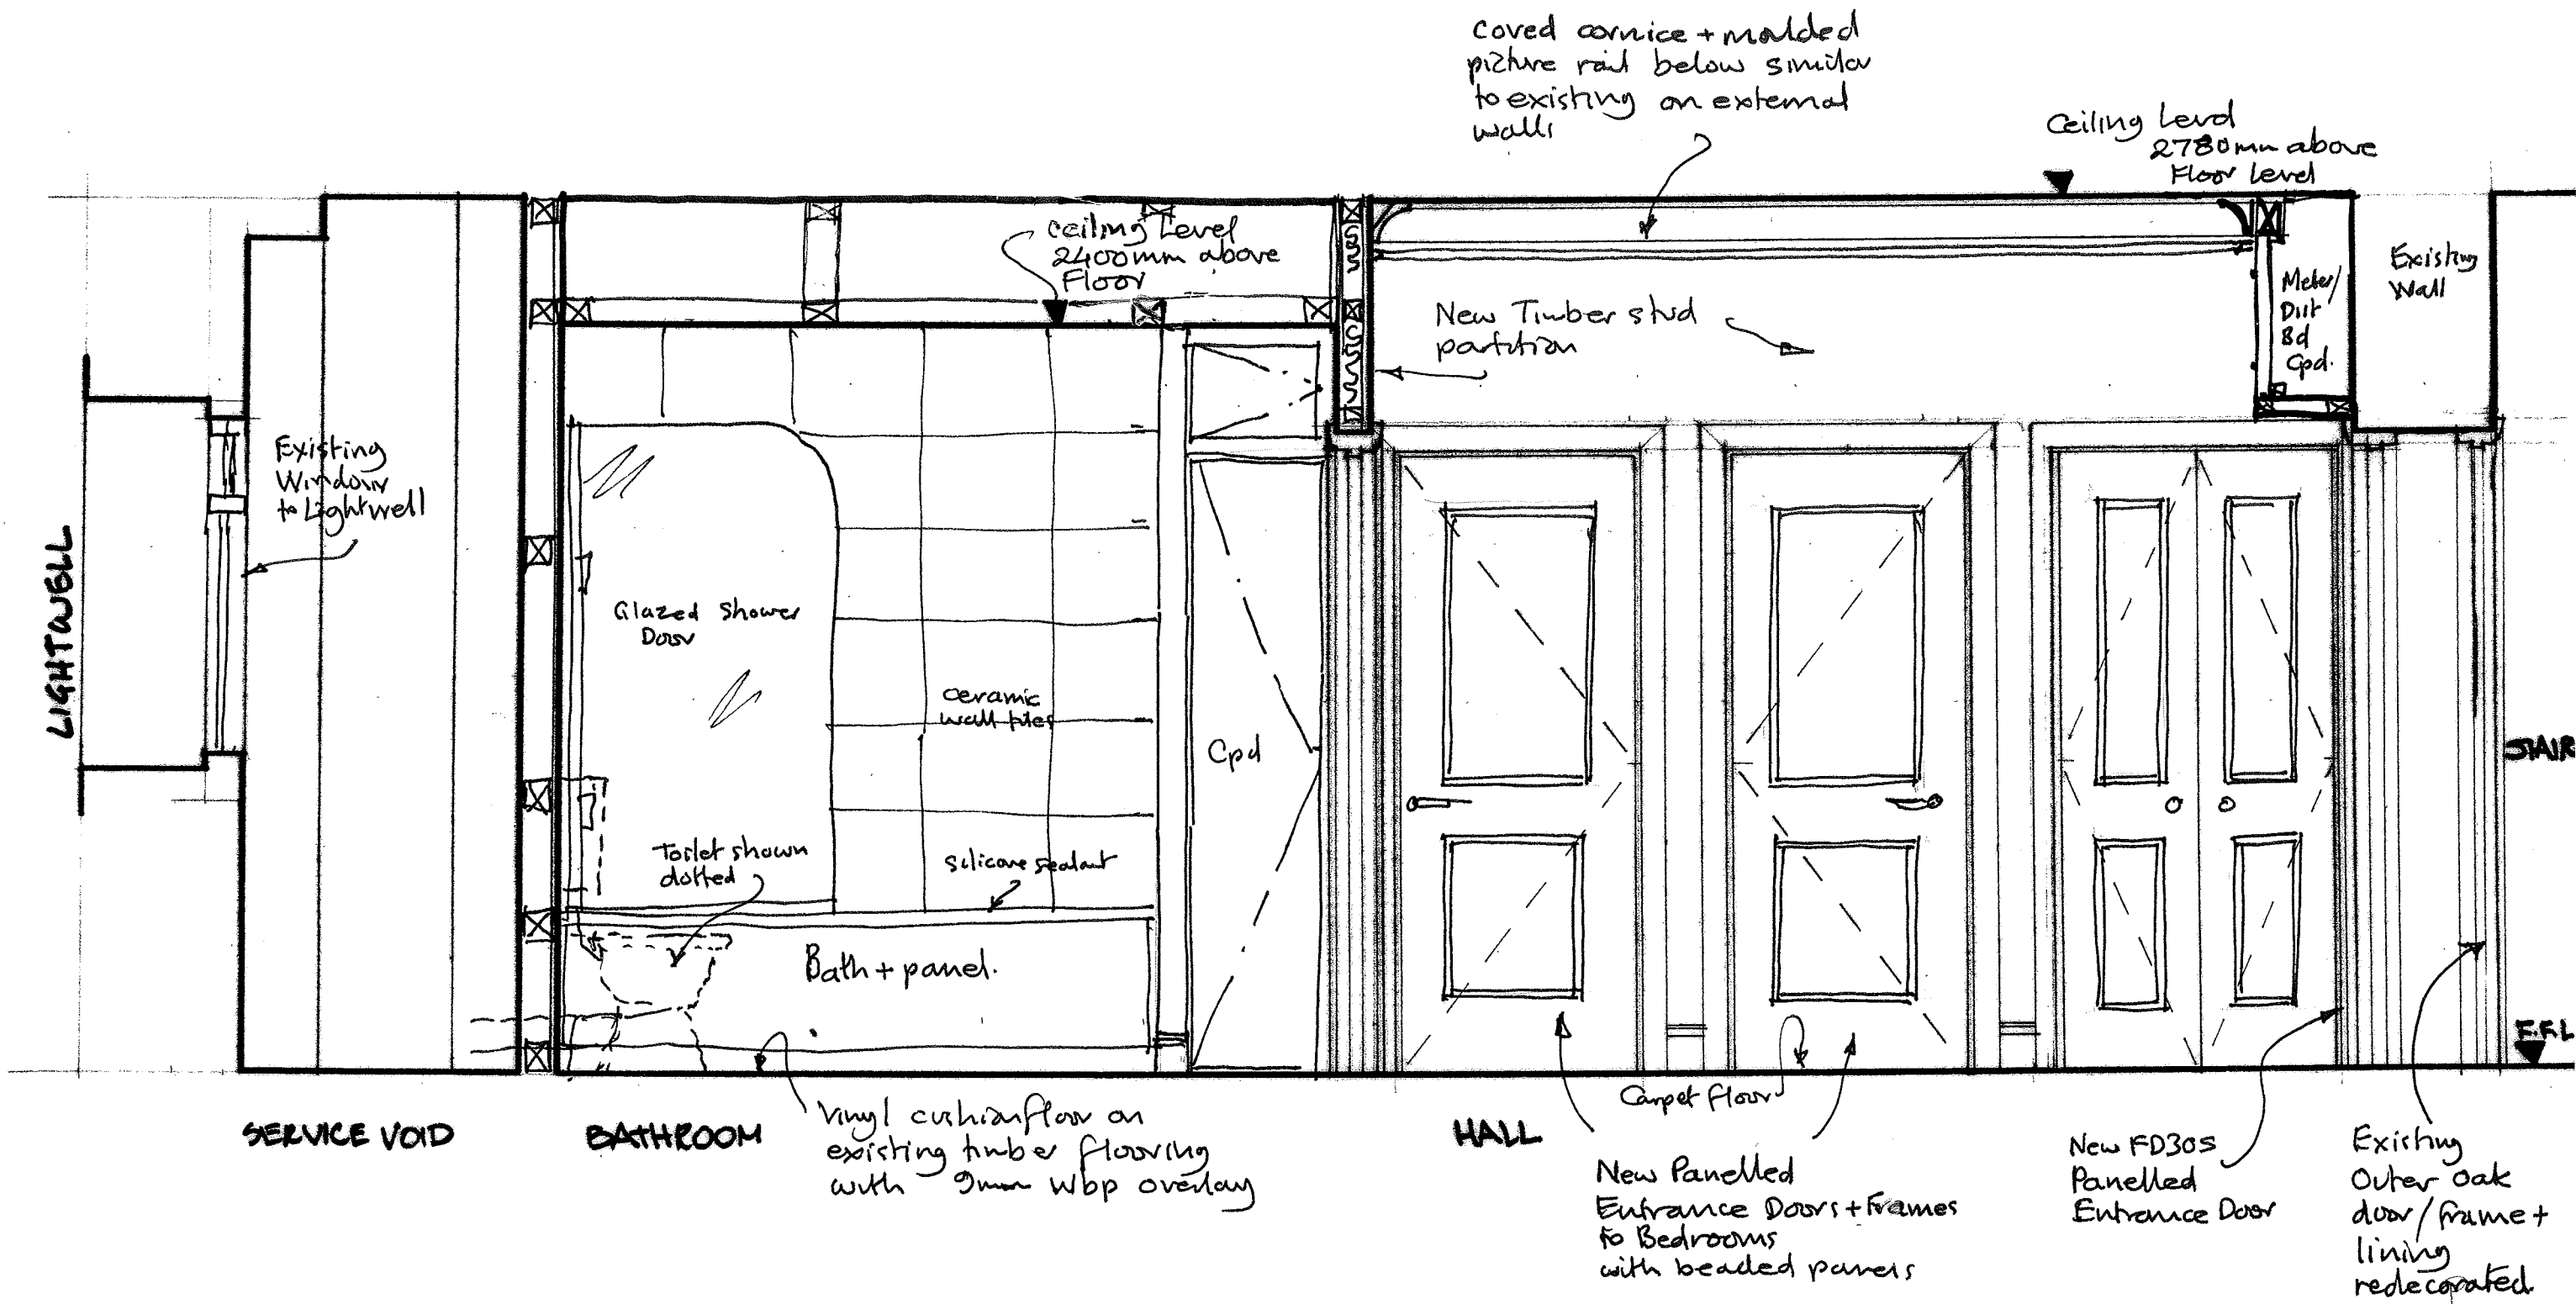 coved cornice + moulded
picture rail below similar
to existing on external
walls
Ceiling Level
2780mm above
Floor Level
Ceiling Level
2400mm above
Floor
Existing
Wall
Meter/
Dist
Bd
Cpd.
New Timber stud
partition
Existing
Window
to Lightwell
LIGHTWELL
Glazed Shower
Door
Ceramic
wall tiles
Cpd
STAIR
Toilet shown
dotted
Silicone sealant
Bath + panel.
F.F.L
Carpet floor
SERVICE VOID
BATHROOM
HALL
Vinyl cushionfloor on
existing timber flooring
with 9mm Wbp overlay
New Panelled
Entrance Doors + Frames
to Bedrooms
with beaded panels
New FD30S
Panelled
Entrance Door
Existing
Outer Oak
door/frame +
lining
redecorated.